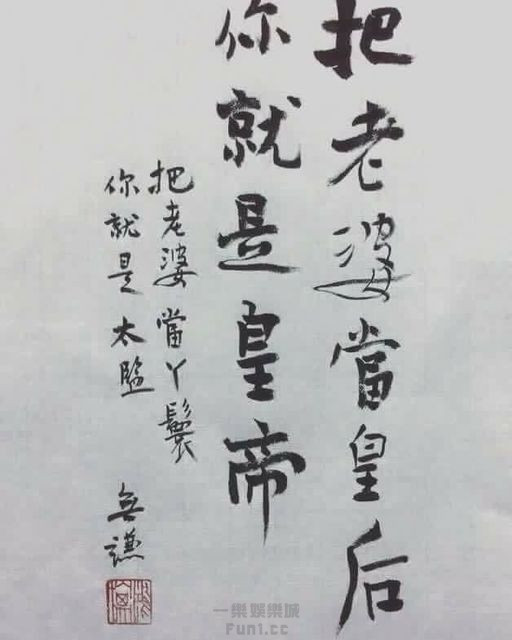 把老婆當皇后
你就是皇帝
把老婆當丫鬟
你就是太監
無謙
一樂娛樂城
Fun1.cc